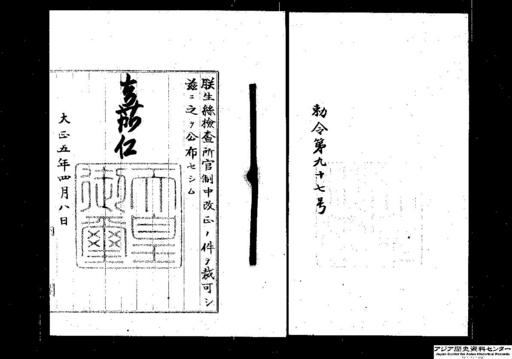 勅令第九十七号
朕生絲檢査所官制中改正ノ件ヲ裁可シ
茲ニ之ヲ公布セシム
嘉仁
天皇
御璽
大正五年四月八日
アジア歴史資料センター
Japan Center for Asian Historical Records